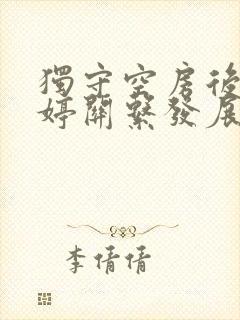 獨守空房後
婷關繫發展
李倩倩